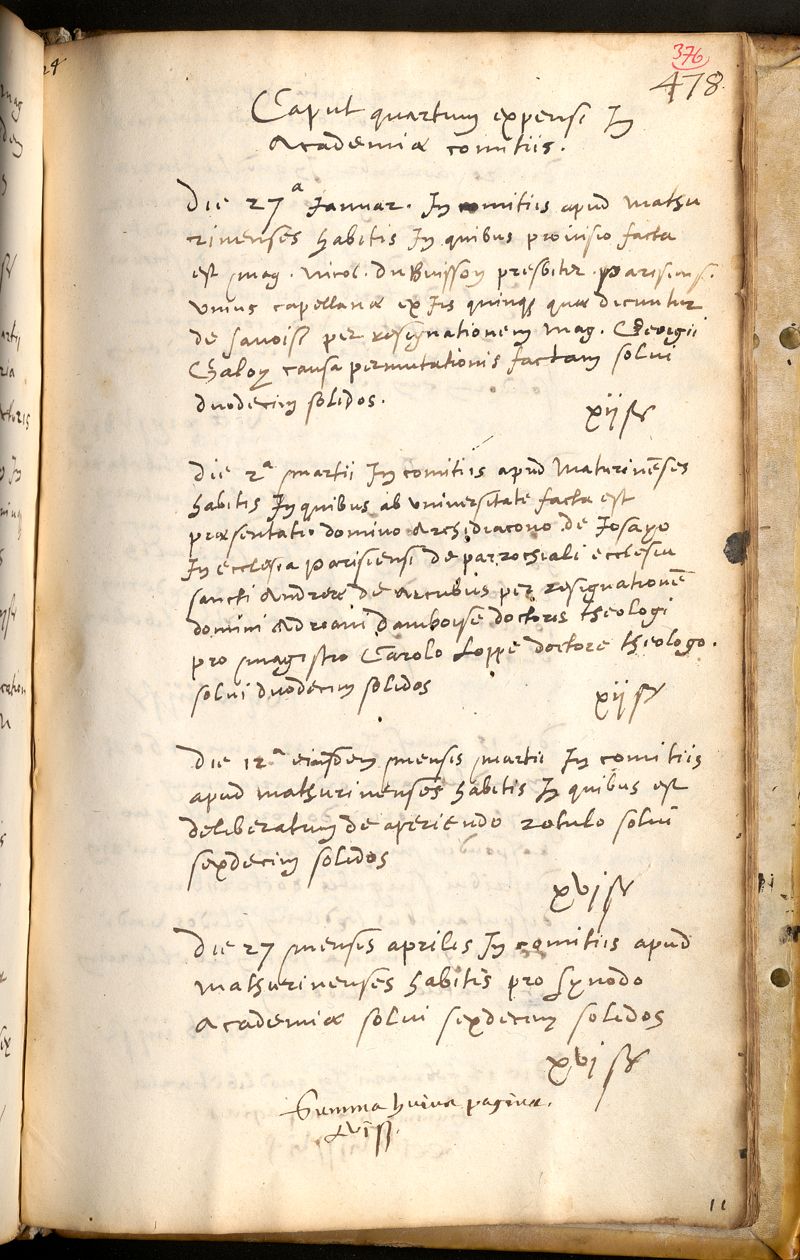 376
478
Caput quartum expensi In
Academiæ comitiis.
Die 27ª Ianuar. In comitiis apud mathu
rinenses habitis In quibus prouisio facta
est mag. Nicol. du Buisson presbiter. parisiens.
vnius capellanæ ex iis quinq; quæ dicuntur
de sauoisi per resignationem mag. Georgii
causa permutationis factam solui
duodecim solidos.
xijs
Die 2ª martii In comitiis apud Maturinēses
habitis In quibus ab vniuersitate facta est
præsentatio domino Archidiacono de Iosayo
In ecclesia parisiensi de parrochiali ecclesia
sancti Andreæ de Arcubus per resignationē
domini Adriani damboyse doctoris theologi
pro magistro Carolo Loppe doctore theologo.
solui duodecim solidos
xijs
Die 12ª eiusdem mensis martii In comitiis
apud mathurinenses habitis In quibus est
deliberatum de aperiendo rotulo solui
sexdecim solidos
xvjs
Die 27 mensis aprilis In comitiis apud
mathurinenses habitis pro synodo
Academiæ solui sexdecim solidos
xvjs
Summa huius paginæ.
lvis.
11